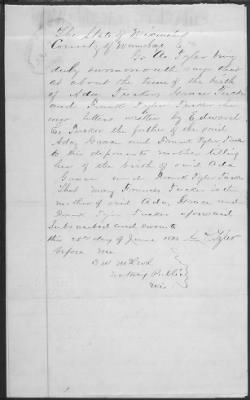 The State of Wisconsin
County of Winnebago
Tyler being
duly sworn on oath says that
at about the time of the birth
of Ada Tucker, Grace Tucker
and Frank Tyler Tucker she
saw letters written by Edward
Tucker the father of the said
Ada, Grace and Frank Tyler Tucker
to this deponents mother telling
her of the birth of said Ada
Grace and Frank Tyler Tucker
That Mary Frances Tucker is the
mother of said Ada, Grace and
Frank Tyler Tucker aforesaid
Subscribed and sworn to
this 28th day of June Tyler
before me
Notary Public
Wis